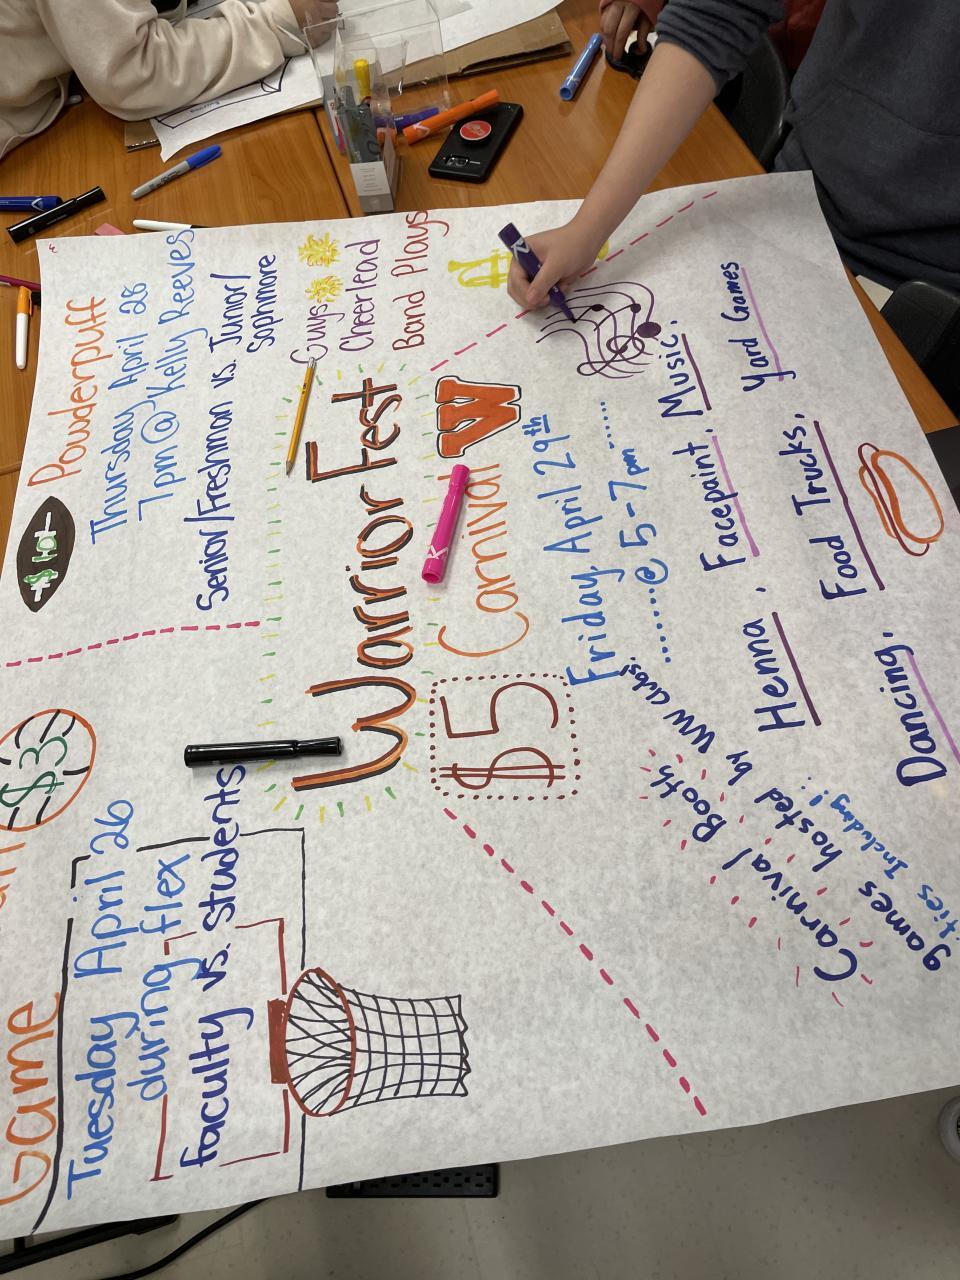 Powderpuff
Thursday April 28
7pm @ Kelly Reeves
Senior/Freshman vs. Junior/
Sophmore
Guys
Cheerlead
Band Plays
$3
Game
Tuesday April 26
during flex
faculty vs. students
Warrior Fest
W
Carnival
$5
Friday, April 29th
@ 5-7pm
Music,
Facepaint,
Henna,
Yard Games
Food Trucks,
Dancing,
Carnival Booth
games hosted by WW clubs!
Including!